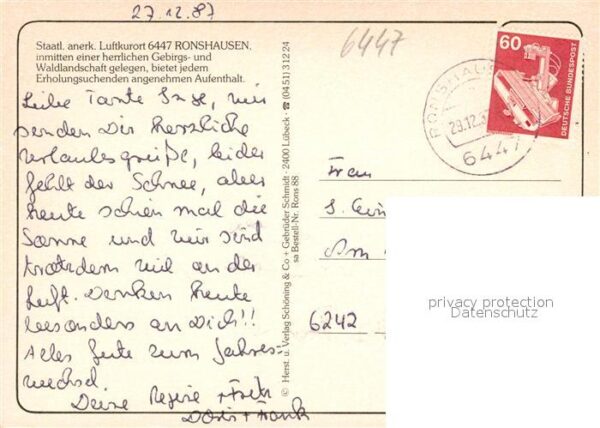 27.12.87
Staatl. anerk. Luftkurort 6447 RONSHAUSEN,
inmitten einer herrlichen Gebirgs- und
Waldlandschaft gelegen, bietet jedem
Erholungsuchenden angenehmen Aufenthalt.
Liebe Tante Inge, wir
senden Dir herzliche
Urlaubsgrüße, leider
fehlt der Schnee, aber
heute schien mal die
Sonne und wir sind
trotzdem viel an der
Luft. Denken heute
besonders an Dich!!
Alles Gute zum Jahres-
wechsel.
Deine Regine + Fritz
Doris + Frank
© Herst. u. Verlag Schöning & Co + Gebrüder Schmidt · 2400 Lübeck · ☎ (04 51) 3 12 24
sa Bestell-Nr. Rons 88
6447
60
DEUTSCHE BUNDESPOST
RONSHAU
29.12.8
6447
Frau
Am
6242
privacy protection
Datenschutz